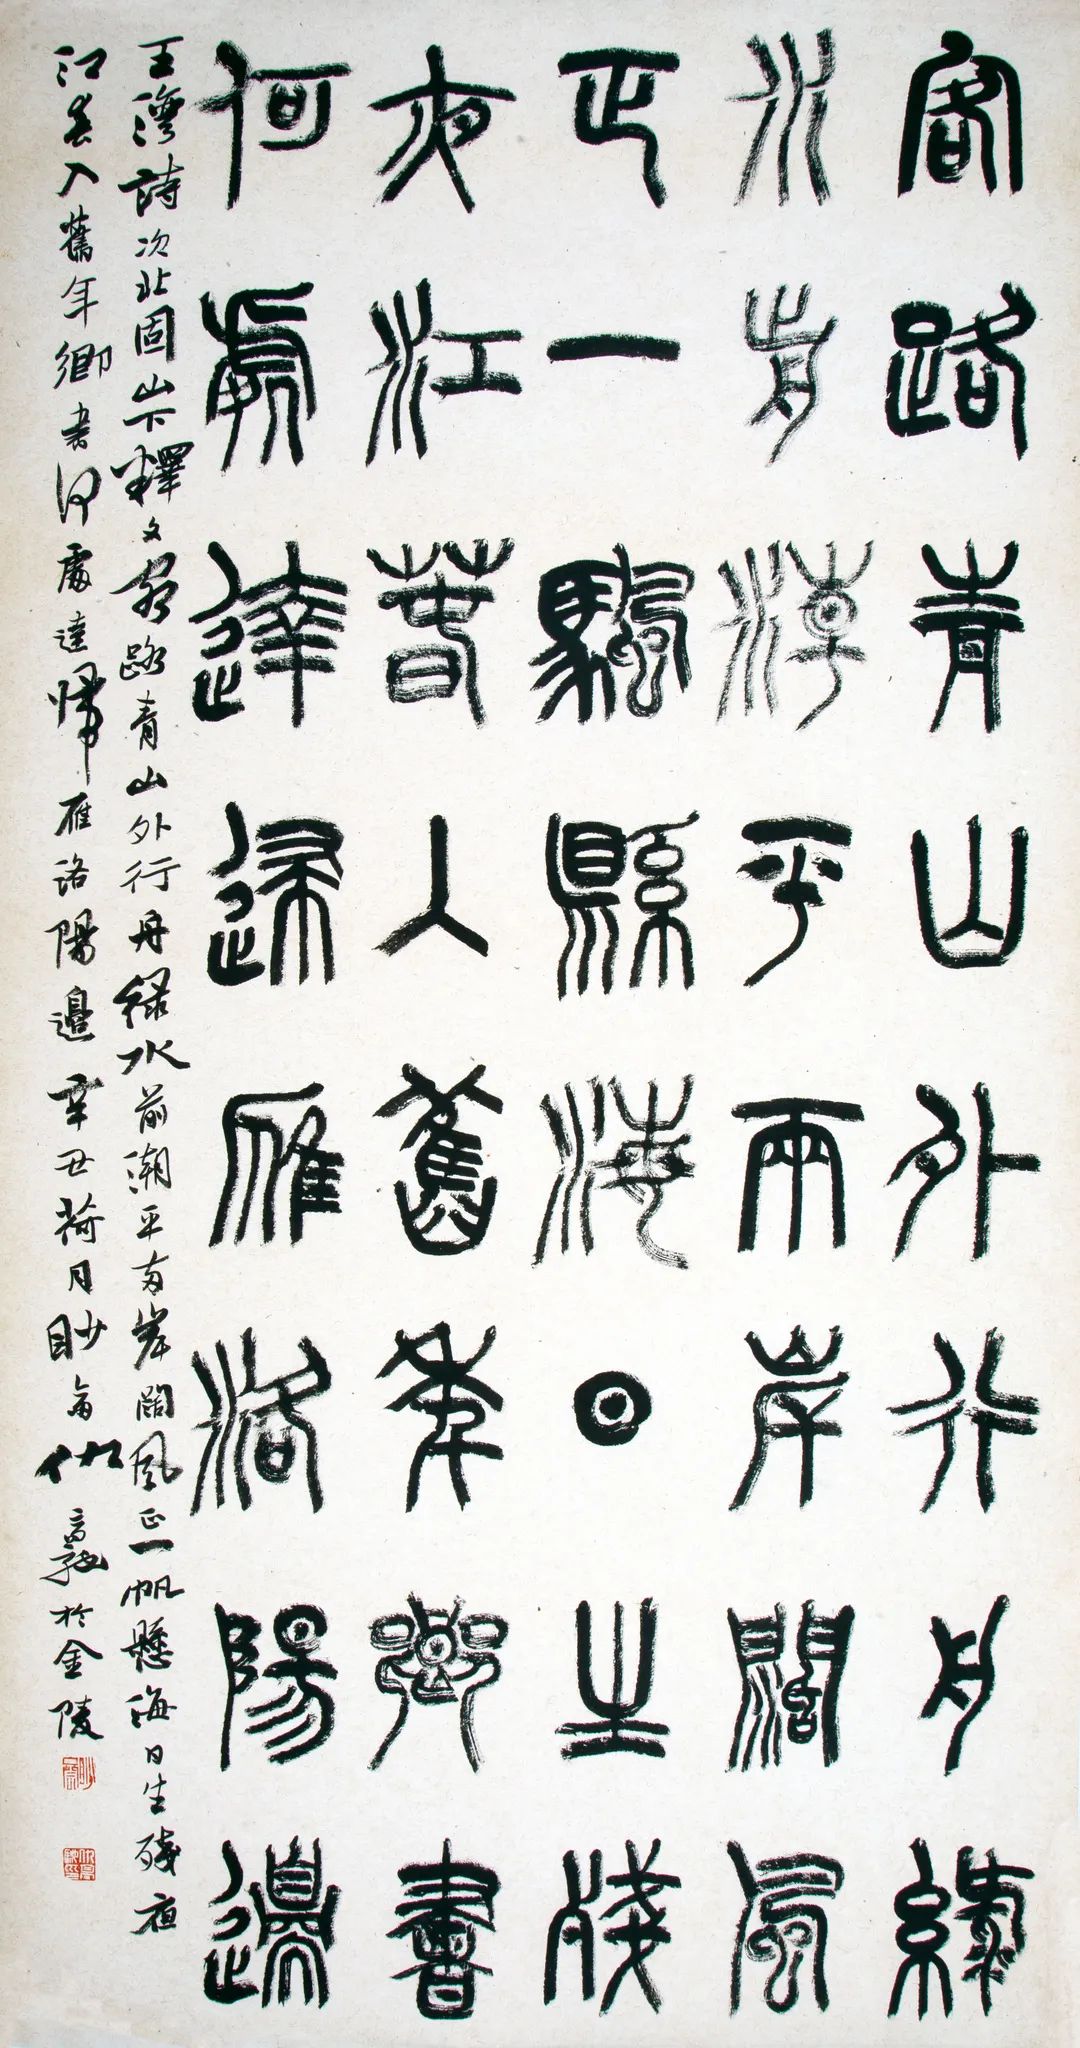 客路青山外行舟綠
水前淖平兩岸闊風
正一颿縣海日生殘
夜江春入舊年鄉書
何處達歸雁洛陽邊
王灣詩次北固山下釋文客路青山外行舟綠水前潮平兩岸闊風正一帆懸海日生殘夜
江春入舊年鄉書何處達歸雁洛陽邊辛丑荷月眇仇高馳於金陵